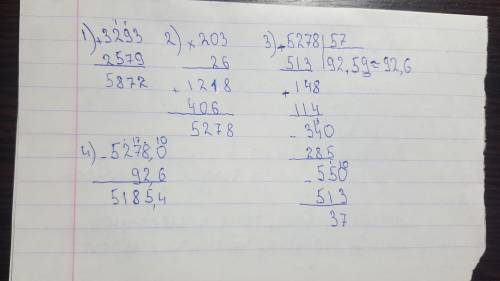 1) +3293
2579
5872
2) ×203
26
+1218
406
5278
3) -5278 | 57
513 | 92,59≈92,6
+148
114
-340
285
-550
513
37
4) -5278,0
92,6
5185,4